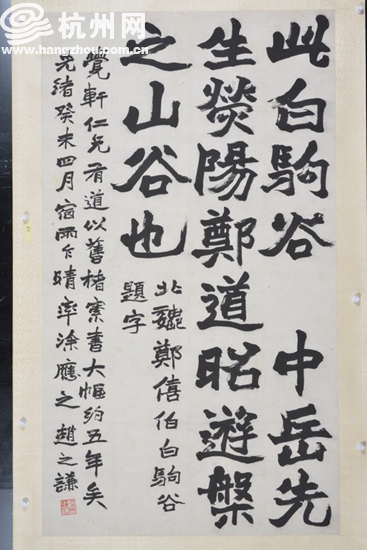 杭州网
www.hangzhou.com.cn
此白駒谷 中岳先
生熒陽鄭道昭遊槃
之山谷也
北魏鄭僖伯白駒谷
題字
覺軒仁兄有道以舊楮索書大幅約五年矣
光緒癸未四月宿雨乍晴率涂應之趙之謙